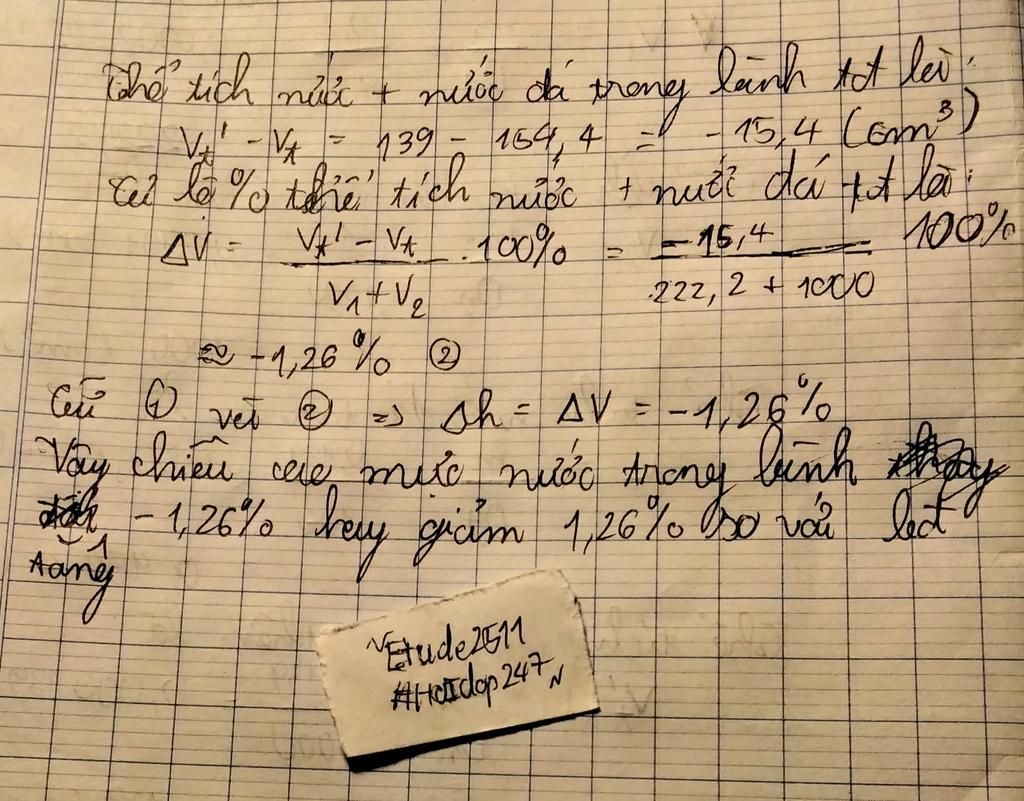 Thể tích nước + nước đá trong bình tđ là:
Vt' - Vt = 139 - 154,4 = -15,4 (cm³)
Tỉ lệ % thể tích nước + nước đá tđ là:
ΔV = (Vt' - Vt)/(V1 + V2) . 100% = (-15,4)/(222,2 + 1000) 100%
≈ -1,26% ②
Từ ① và ② => Δh = ΔV = -1,26%
Vậy chiều cao mực nước trong bình
tăng -1,26% hay giảm 1,26% so với lđ
"Etude2511
#Hoidap247"